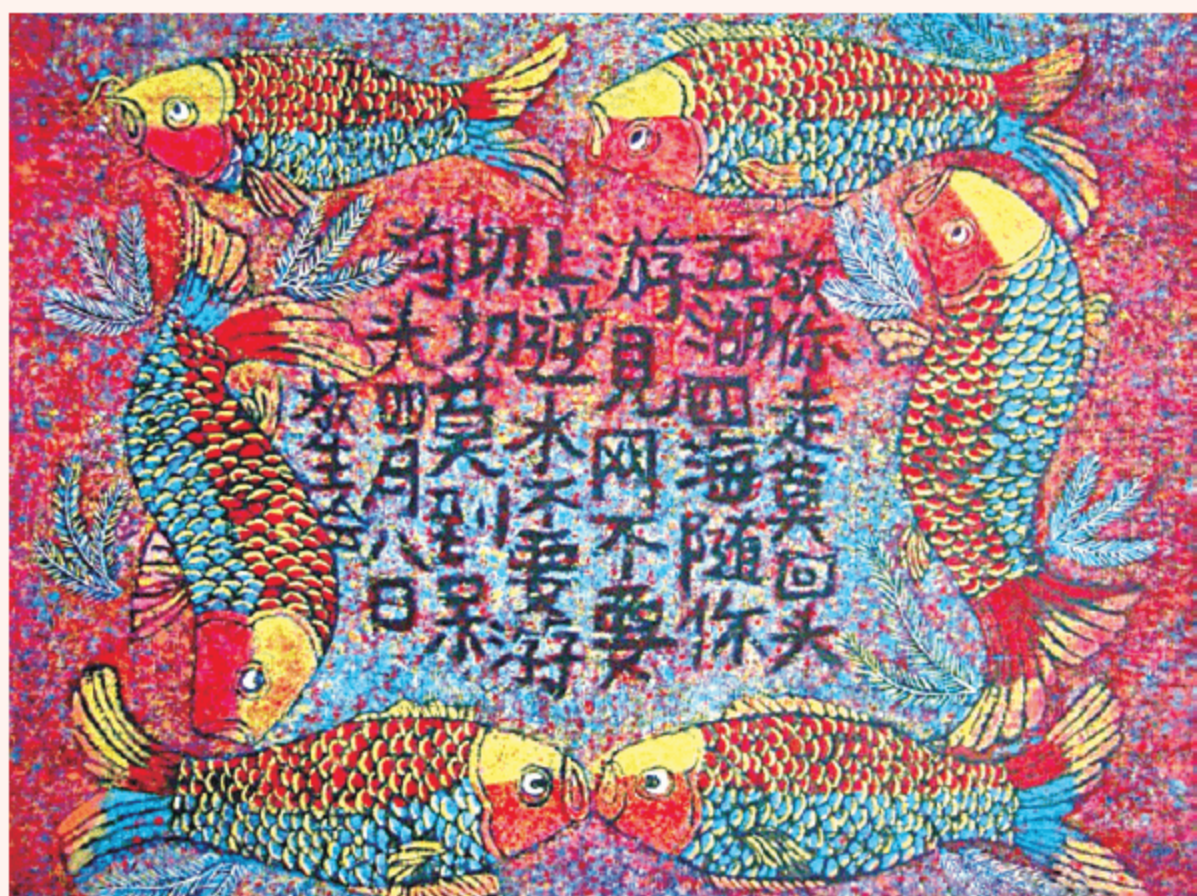 放你走莫回头
五湖四海随你
游见网不要
上逆水不要游
切切莫到呆
沟头四月八日
放生会